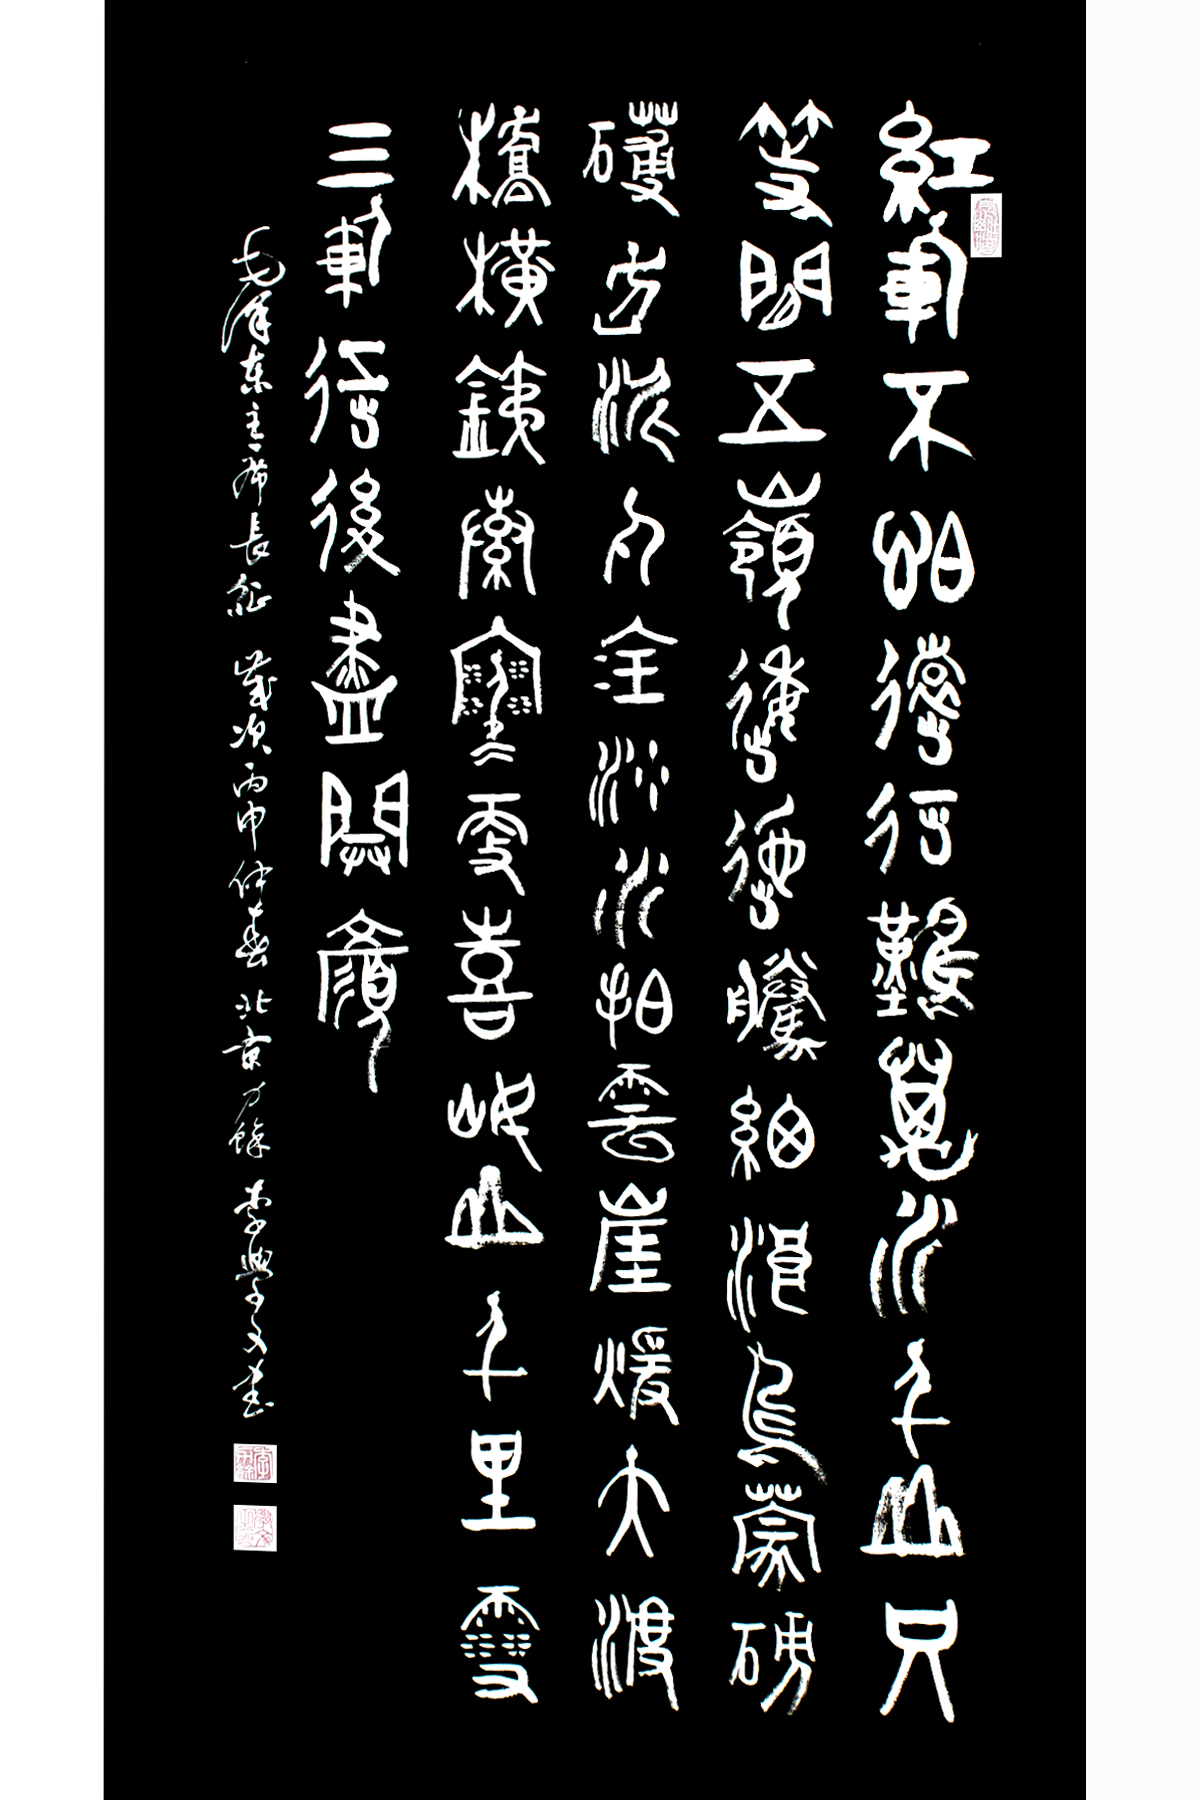 紅軍不怕遠征難萬水千山只
等閒五嶺逶迤騰細浪烏蒙磅
礴走泥丸金沙水拍雲崖暖大渡
橋橫鐵索寒更喜岷山千里雪
三軍過後盡開顏
毛澤東主席長征 歲次丙申仲春 北京 李學文書